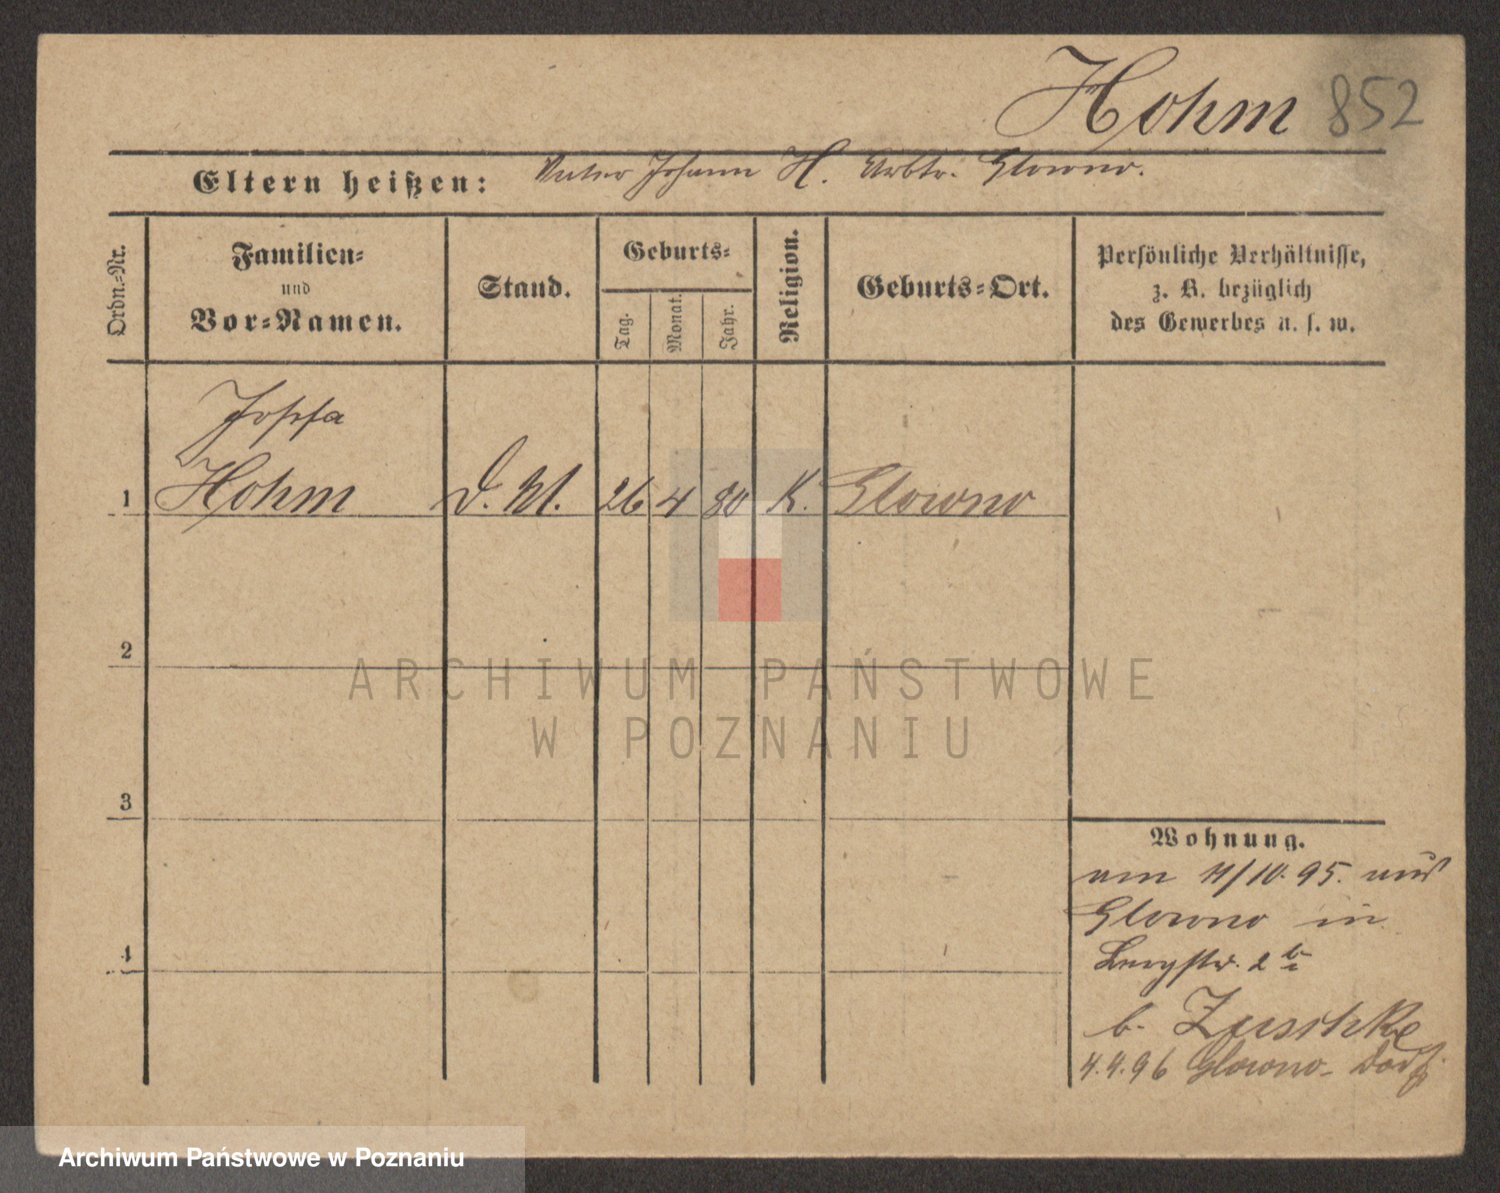 Hohm 852
Eltern heißen: Vater Johann H. Arbtr. Glowno.
Ordn.-Nr.
Familien-
und
Vor-Namen.
Stand.
Geburts-
Tag.
Monat.
Jahr.
Religion.
Geburts-Ort.
Persönliche Verhältnisse,
z. B. bezüglich
des Gewerbes u. s. w.
Josefa
1 Hohm D. M. 26 4 80 K. Glowno
2
3
4
Wohnung.
am 11/10. 95. aus
Glowno in
Bergstr. 2
b. Zuschke
4.4.96 Glowno- Dorf
ARCHIWUM PAŃSTWOWE
W POZNANIU
Archiwum Państwowe w Poznaniu